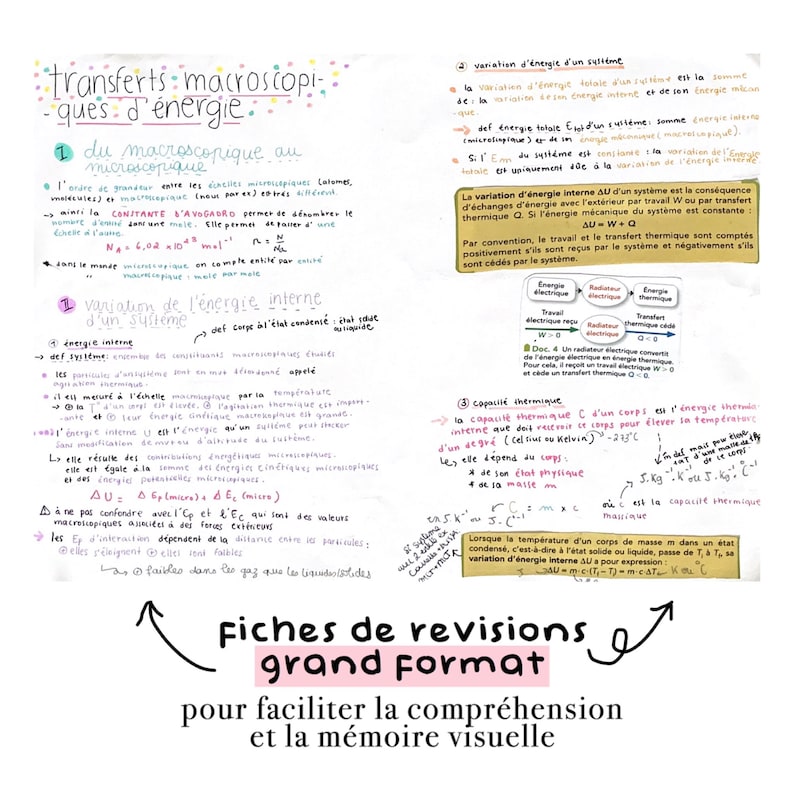 transferts macroscopi-
-ques d'énergie.
I du macroscopique au
microscopique
l'ordre de grandeur entre les échelles microscopiques (atomes,
molécules) et macroscopique (nous par ex) est très différent.
→ ainsi la CONSTANTE D'AVOGADRO permet de dénombrer le
nombre d'entité dans une mole. Elle permet de passer d'une
échelle à l'autre.
NA = 6,02 × 10²³ mol⁻¹ n = N/Na
dans le monde microscopique on compte entité par entité
" macroscopique : mole par mole
II variation de l'énergie interne
d'un système
def corps à l'état condensé : état solide
ou liquide
① énergie interne
→ def système: ensemble des constituants macroscopiques étudiés
les particules d'un système sont en mvt désordonné appelé
agitation thermique.
il est mesuré à l'échelle macroscopique par la température
→ ⊕ la T° d'un corps est élevée, ⊕ l'agitation thermique est import-
-ante et ⊕ leur énergie cinétique macroscopique est grande.
l'énergie interne U est l'énergie qu'un système peut stocker
sans modification de mvt ou d'altitude du système.
↳ elle résulte des contributions énergétiques microscopiques.
elle est égale à la somme des énergies cinétiques microscopiques
et des énergies potentielles microscopiques.
ΔU = Δ Ep (micro) + Δ Ec (micro)
⚠ à ne pas confondre avec l'Ep et l'Ec qui sont des valeurs
macroscopiques associées à des forces extérieurs
→ les Ep d'interaction dépendent de la distance entre les particules :
⊕ elles s'éloignent ⊕ elles sont faibles
↳ ⊕ faibles dans les gaz que les liquides/solides
② variation d'énergie d'un système
la variation d'énergie totale d'un système est la somme
de : la variation de son énergie interne et de son énergie mécan
-que.
→ def énergie totale Etot d'un système : somme énergie interne
(microscopique) et de son énergie mécanique (macroscopique).
Si l'Em du système est constante : la variation de l'Energie
totale est uniquement dûe à la variation de l'énergie interne
La variation d'énergie interne ΔU d'un système est la conséquence
d'échanges d'énergie avec l'extérieur par travail W ou par transfert
thermique Q. Si l'énergie mécanique du système est constante :
ΔU = W + Q
Par convention, le travail et le transfert thermique sont comptés
positivement s'ils sont reçus par le système et négativement s'ils
sont cédés par le système.
Énergie électrique Radiateur électrique Énergie thermique
Travail électrique reçu W > 0 Radiateur électrique Transfert thermique cédé Q < 0
Doc. 4 Un radiateur électrique convertit
de l'énergie électrique en énergie thermique.
Pour cela, il reçoit un travail électrique W > 0
et cède un transfert thermique Q < 0.
③ capacité thermique
→ la capacité thermique C d'un corps est l'énergie thermique
interne que doit recevoir ce corps pour élever sa température
d'un degré (Celsius ou Kelvin) -273°C
↳ elle dépend du corps:
* de son état physique
* de sa masse m
m def mais pour élever
la T d'une masse de 1kg
de ce corps
J.Kg⁻¹.K⁻¹ ou J.Kg⁻¹.°C⁻¹
en J.K⁻¹
ou J.°C⁻¹
C = m × c
où c est la capacité thermique
massique
si système
Lorsque la température d'un corps de masse m dans un état
condensé, c'est-à-dire à l'état solide ou liquide, passe de Ti à Tf, sa
variation d'énergie interne ΔU a pour expression :
J ΔU = m·c·(Tf – Ti) = m·c·ΔT K ou °C
fiches de revisions
grand format
pour faciliter la compréhension
et la mémoire visuelle